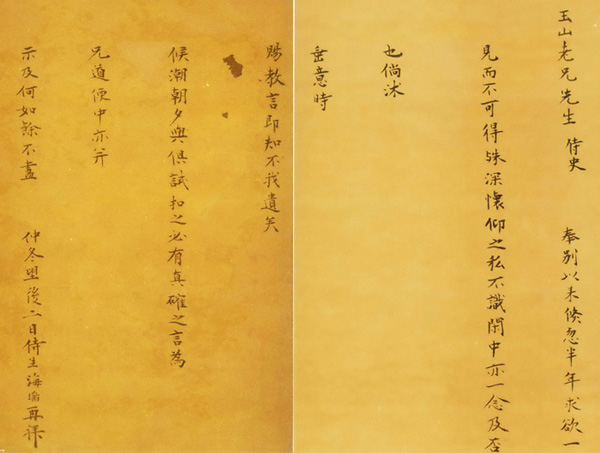 玉山老兄先生 侍史 奉別以來倏忽半年求欲一
見而不可得殊深懷仰之私不識閑中亦一念及否
也倘沐
垂意時
賜教言即知不我遺矣
候潮朝夕與俱試扣之必有真確之言為
兄道便中亦并
示及何如餘不盡 仲冬望後二日侍生海瑞再拜